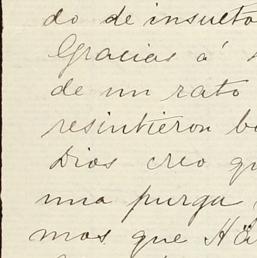 do de insulto
Gracias á
de un rato
resintieron
Dios creo
una purga
mos que